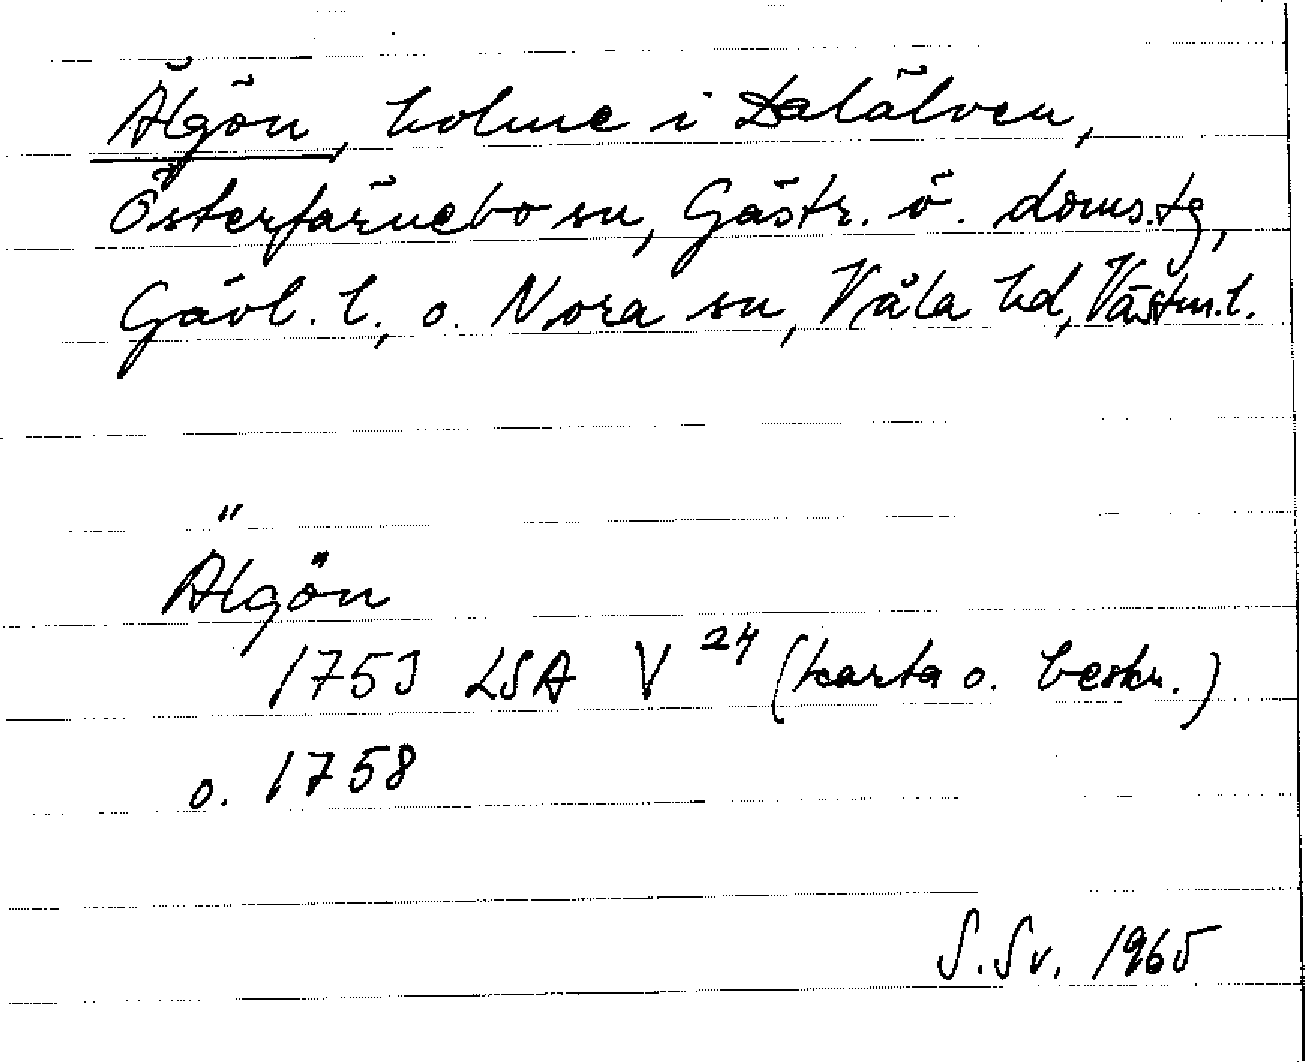 Älgön, holme i Dalälven,
Österfärnebo sn, Gästr. ö. domstg,
Gävl. l., o. Nora sn, Våla hd, Västm. l.
Älgön
1753 LSA V 24 (karta o. beskr.)
o. 1758
S. Sv. 1965